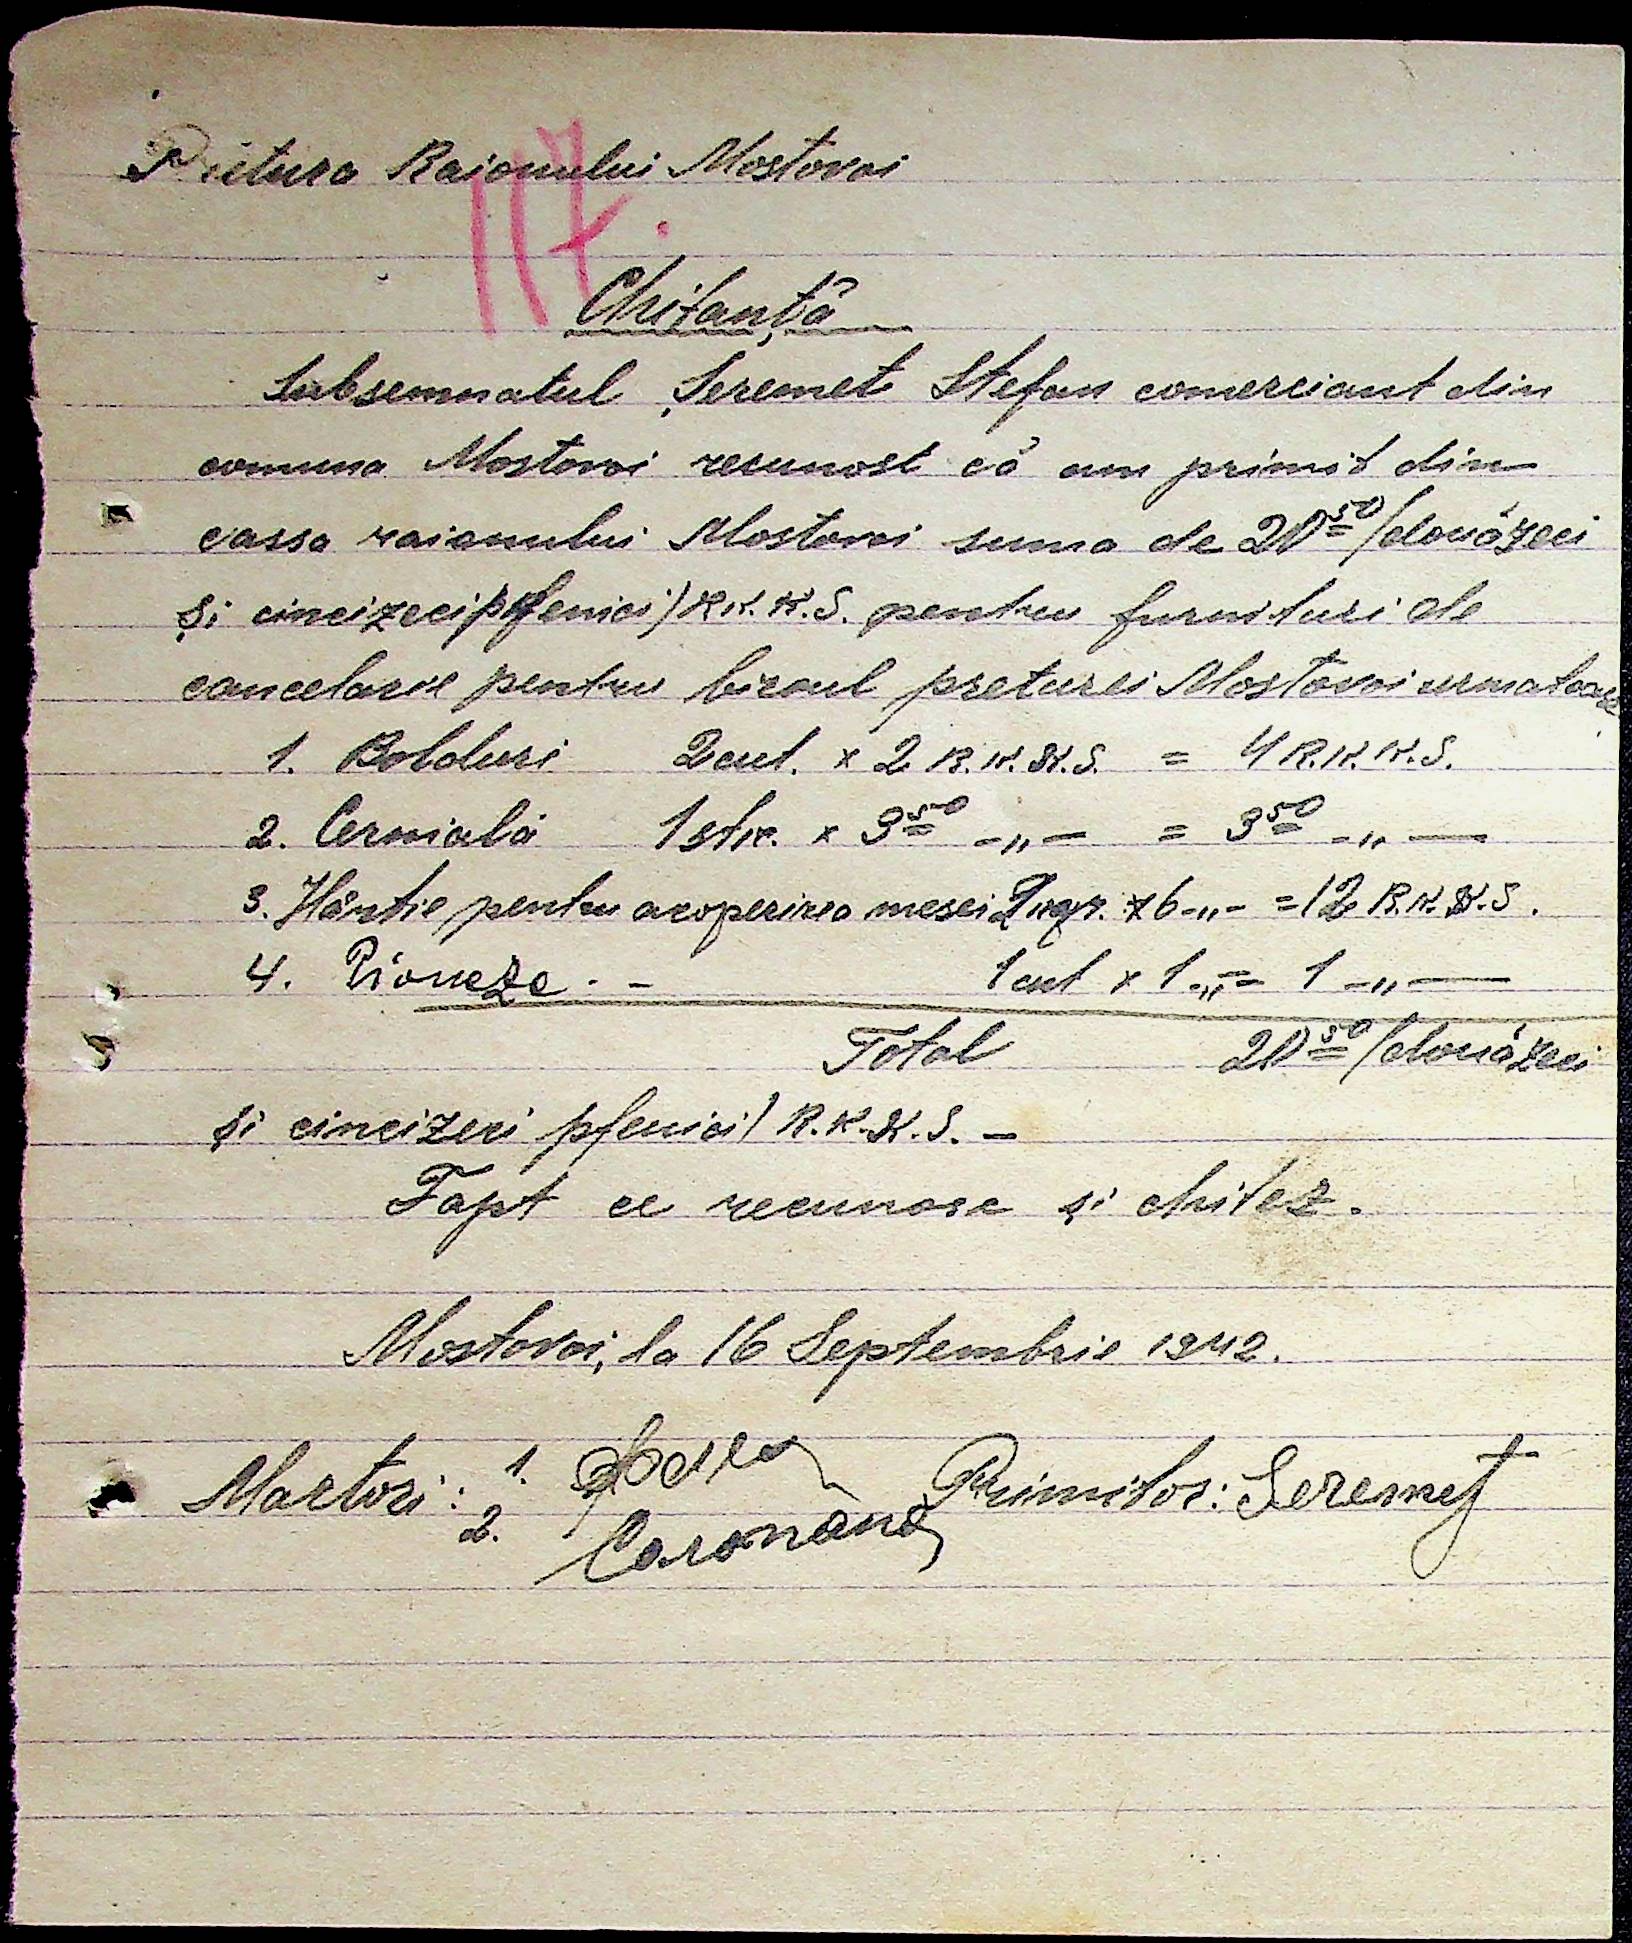 Pretura Raionului Mostovoi
117.
Chitanță
Subsemnatul Șeremet Stefan comerciant din
comuna Mostovoi recunosc că am primit din
cassa raionului Mostovoi suma de 20 50/douăzeci
și cincizeci pfenici) R.K.K.S. pentru furnituri de
cancelarie pentru biroul preturei Mostovoi urmatoare
1. Bolduri 2 cut. x 2 R.K.K.S. = 4 R.K.K.S.
2. Cernială 1 stk. x 3 50 -„- = 3 50 -„-
3. Hârtie pentru acoperirea mesei 2 kgr. x 6 -„- = 12 R.K.K.S.
4. Pioneze. - 1 cut x 1 -„- = 1 -„-
Total 20 50/douăzeci
și cincizeci pfenici) R.K.K.S. -
Fapt ce recunosc și chitez.
Mostovoi, la 16 Septembrie 1942.
Martori: 1. Primitor: Seremet
2.